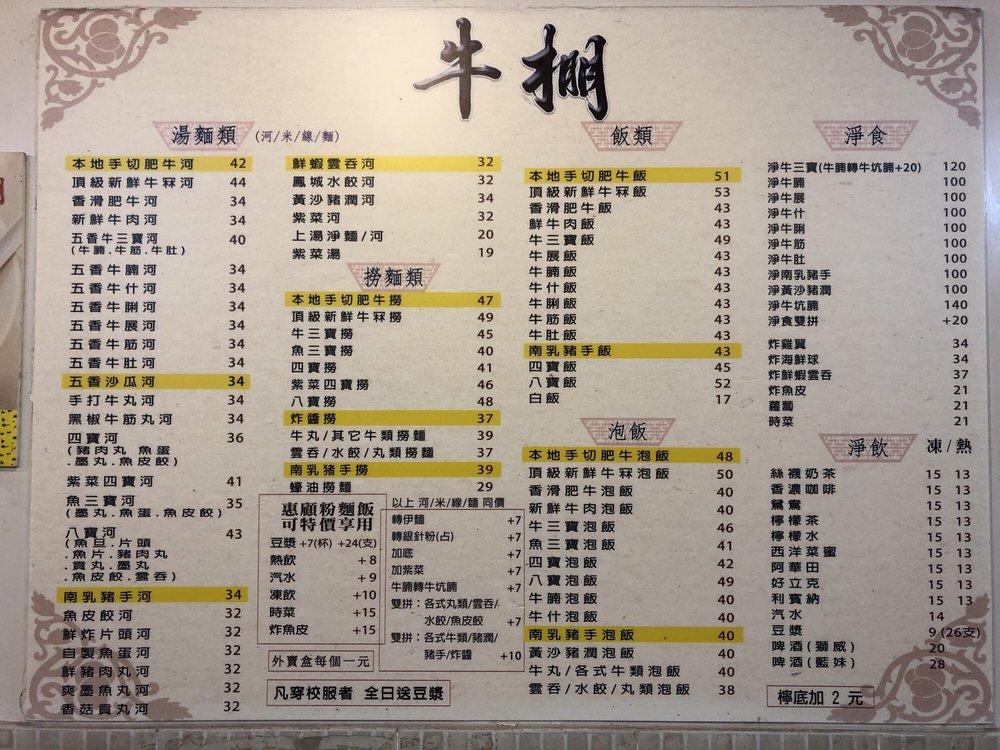 牛棚
湯麵類 (河/米/線/麵)
本地手切肥牛河 42
頂級新鮮牛冧河 44
香滑肥牛河 34
新鮮牛肉河 34
五香牛三寶河 40
(牛腩.牛筋.牛肚)
五香牛腩河 34
五香牛什河 34
五香牛脷河 34
五香牛展河 34
五香牛筋河 34
五香牛肚河 34
五香沙瓜河 34
手打牛丸河 34
黑椒牛筋丸河 34
四寶河 36
(豬肉丸 魚蛋
.墨丸.魚皮餃)
紫菜四寶河 41
魚三寶河 35
(墨丸.魚蛋.魚皮餃)
八寶河 43
(魚旦.片頭
.魚片.豬肉丸
.貢丸.墨丸
.魚皮餃.雲吞)
南乳豬手河 34
魚皮餃河 32
鮮炸片頭河 32
自製魚蛋河 32
鮮豬肉丸河 32
爽墨魚丸河 32
香菇貢丸河 32
鮮蝦雲吞河 32
鳳城水餃河 32
黃沙豬潤河 34
紫菜河 32
上湯淨麵/河 20
紫菜湯 19
撈麵類
本地手切肥牛撈 47
頂級新鮮牛冧撈 49
牛三寶撈 45
魚三寶撈 40
四寶撈 41
紫菜四寶撈 46
八寶撈 48
炸醬撈 37
牛丸/其它牛類撈麵 39
雲吞/水餃/丸類撈麵 37
南乳豬手撈 39
蠔油撈麵 29
惠顧粉麵飯
可特價享用
豆漿 +7(杯) +24(支)
熱飲 +8
汽水 +9
凍飲 +10
時菜 +15
炸魚皮 +15
以上 河/米/線/麵 同價
轉伊麵 +7
轉銀針粉(占) +7
加底 +7
加紫菜 +7
牛腩轉牛坑腩 +7
雙拼：各式丸類/雲吞/
水餃/魚皮餃 +7
雙拼：各式牛類/豬潤/
豬手/炸醬 +10
外賣盒每個一元
凡穿校服者 全日送豆漿
飯類
本地手切肥牛飯 51
頂級新鮮牛冧飯 53
香滑肥牛飯 43
鮮牛肉飯 43
牛三寶飯 49
牛展飯 43
牛腩飯 43
牛什飯 43
牛脷飯 43
牛筋飯 43
牛肚飯 43
南乳豬手飯 43
四寶飯 45
八寶飯 52
白飯 17
泡飯
本地手切肥牛泡飯 48
頂級新鮮牛冧泡飯 50
香滑肥牛泡飯 40
新鮮牛肉泡飯 40
牛三寶泡飯 46
魚三寶泡飯 41
四寶泡飯 42
八寶泡飯 49
牛腩泡飯 40
牛什泡飯 40
南乳豬手泡飯 40
黃沙豬潤泡飯 40
牛丸/各式牛類泡飯 40
雲吞/水餃/丸類泡飯 38
淨食
淨牛三寶(牛腩轉牛坑腩+20) 120
淨牛腩 100
淨牛展 100
淨牛什 100
淨牛脷 100
淨牛筋 100
淨牛肚 100
淨南乳豬手 100
淨黃沙豬潤 100
淨牛坑腩 140
淨食雙拼 +20
炸雞翼 34
炸海鮮球 34
炸鮮蝦雲吞 37
炸魚皮 21
蘿蔔 21
時菜 21
淨飲 凍/熱
絲襪奶茶 15 13
香濃咖啡 15 13
鴛鴦 15 13
檸檬茶 15 13
檸檬水 15 13
西洋菜蜜 15 13
阿華田 15 13
好立克 15 13
利賓納 15 13
汽水 14
豆漿 9 (26支)
啤酒(獅威) 20
啤酒(藍妹) 28
檸底加 2 元